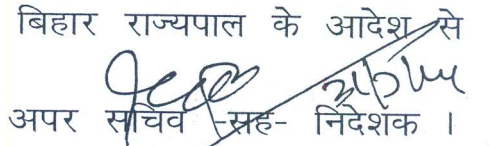 बिहार राज्यपाल के आदेश से
अपर सचिव -सह- निदेशक ।